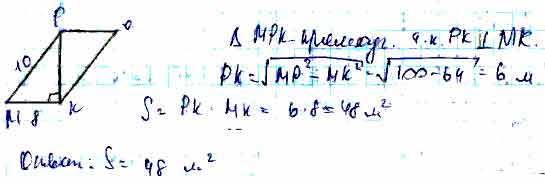 P O
10
M 8 K
Δ MPK - прямоуг. т.к. PK ⊥ MK.
PK = √MP² - MK² = √100-64 = 6 м
S = PK · MK = 6·8 = 48 м²
Ответ: S = 48 м²